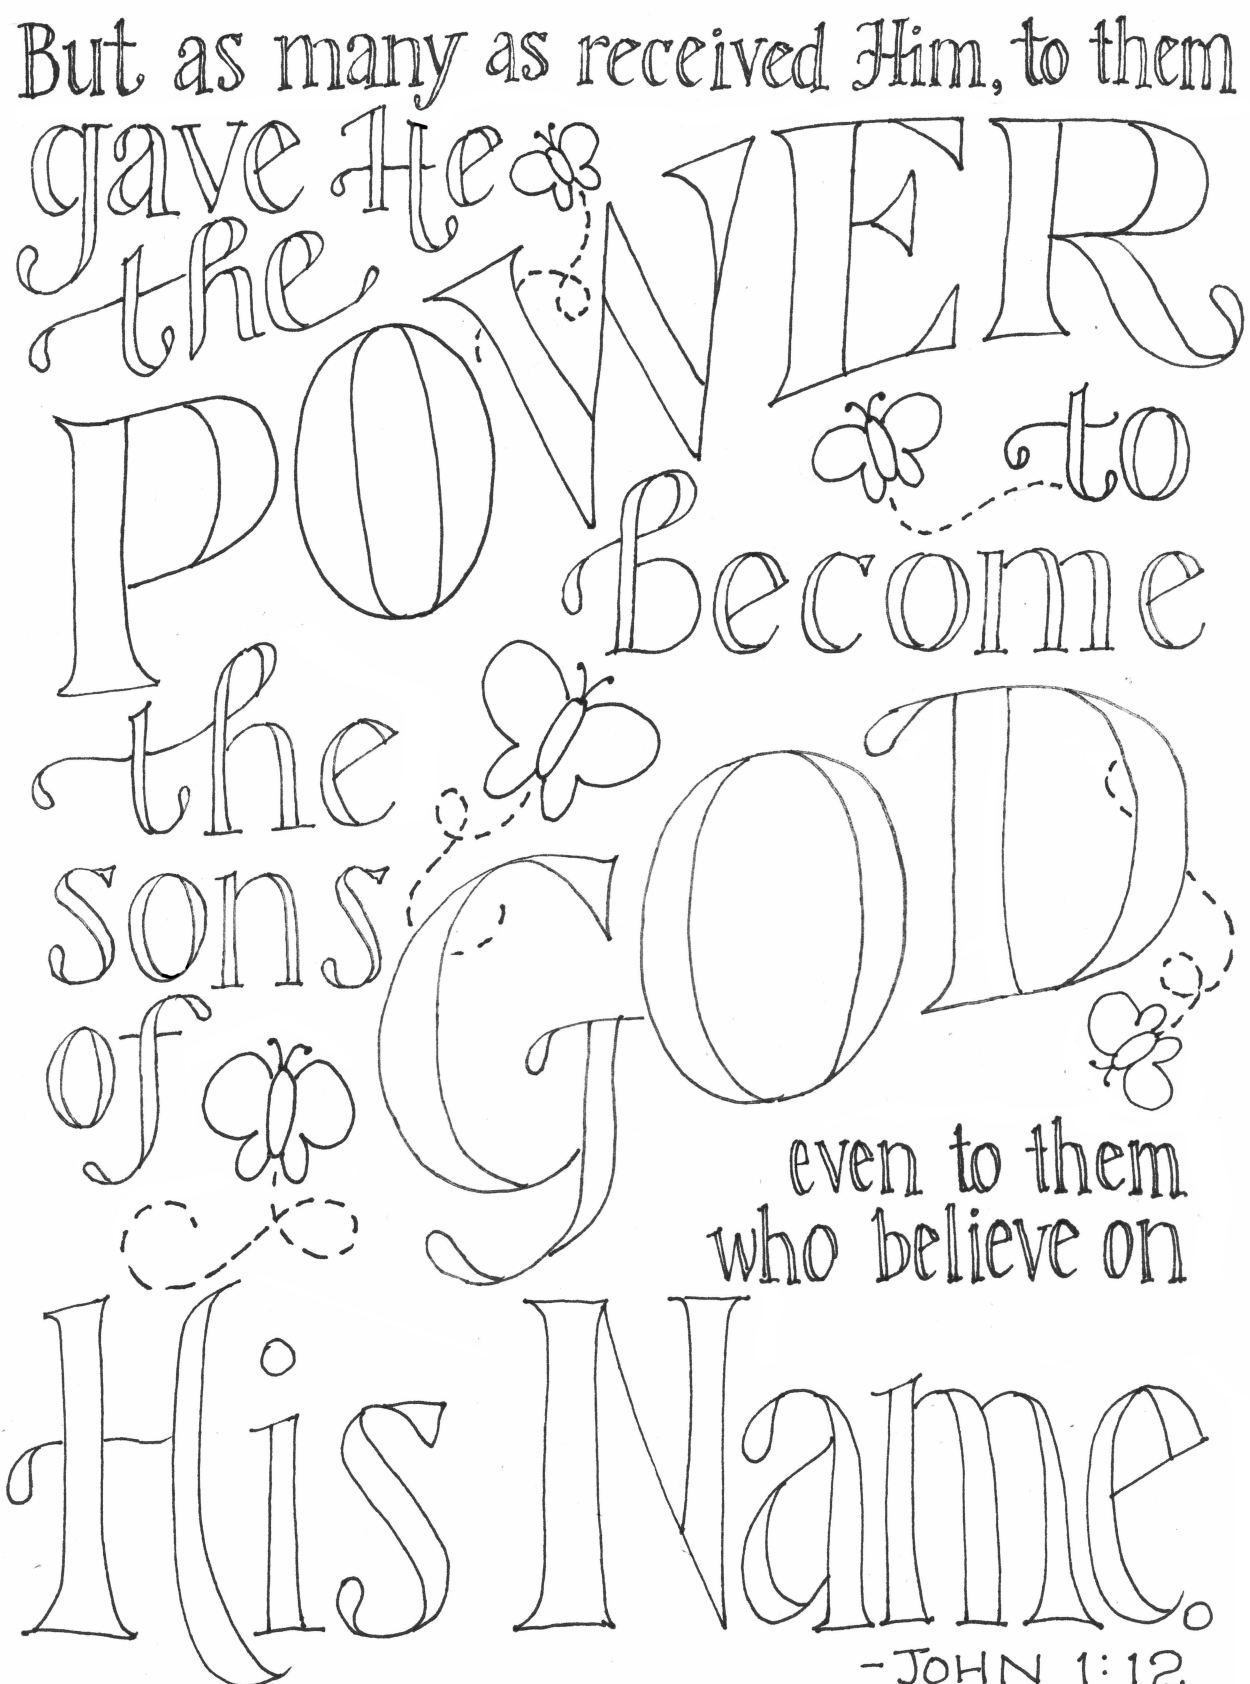 But as many as received Him, to them
gave He
the
POWER
to
become
the
sons
of
GOD
even to them
who believe on
His Name.
-JOHN 1:12